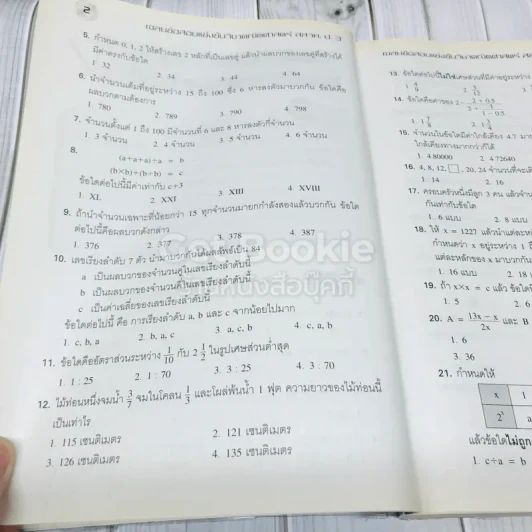 2
5. กำหนด 0, 1, 2 ให้สร้างเลข 2 หลักที่เป็นเลขคู่ แล้วนำผลบวกของเลขคู่ที่สร้างได้
มีค่าตรงกับข้อใด
1. 32 2. 34 3. 44 4. 64
6. นำจำนวนเต็มที่อยู่ระหว่าง 15 ถึง 100 ซึ่ง 6 หารลงตัวมาบวกกัน ข้อใดคือ
ผลบวกตามต้องการ
1. 780 2. 789 3. 790 4. 798
7. จำนวนตั้งแต่ 1 ถึง 100 มีจำนวนที่ 6 และ 8 หารลงตัวกี่จำนวน
1. 3 จำนวน 2. 4 จำนวน 3. 5 จำนวน 4. 6 จำนวน
8.
(a÷a÷a)÷a = b
(b×b)÷(b÷b) = c
ข้อใดต่อไปนี้มีค่าเท่ากับ c÷3
1. XL 2. XXI 3. XIII 4. XVIII
9. ถ้านำจำนวนเฉพาะที่น้อยกว่า 15 ทุกจำนวนมายกกำลังสองแล้วบวกกัน ข้อใด
ต่อไปนี้คือผลบวกดังกล่าว
1. 376 2. 377 3. 378 4. 387
10. เลขเรียงลำดับ 7 ตัว นำมาบวกกันได้ผลลัพธ์เป็น 84
a เป็นผลบวกของจำนวนคู่ในเลขเรียงลำดับนี้
b เป็นผลบวกของจำนวนคี่ในเลขเรียงลำดับนี้
c เป็นค่าเฉลี่ยของเลขเรียงลำดับนี้
ข้อใดต่อไปนี้ คือ การเรียงลำดับ a, b และ c จากน้อยไปมาก
1. c, b, a 2. b, a, c 3. a, c, b 4. c, a, b
11. ข้อใดคืออัตราส่วนระหว่าง 1/10 กับ 2 1/2 ในรูปเศษส่วนต่ำสุด
1. 1 : 25 2. 1 : 70 3. 3 : 25 4. 3 : 70
12. ไม้ท่อนหนึ่งจมน้ำ 3/7 จมในโคลน 1/3 และโผล่พ้นน้ำ 1 ฟุต ความยาวของไม้ท่อนนี้
เป็นเท่าไร
1. 115 เซนติเมตร 2. 121 เซนติเมตร
3. 126 เซนติเมตร 4. 135 เซนติเมตร
Bookie
ร้านหนังสือบุ๊คกี้
14. ข้อใดคือค่าของ
15. จำนวนในข้อใดมีค่าใกล้เคียง 4.7 มาก
1. 4.80000 2. 4.72640
16. 4, 8, 12, □, 20, 24 จำนวนที่จะเติม
1. 14 2. 16
17. ครอบครัวหนึ่งมีลูก 3 คน แล้วจำนวน
กันเท่ากับข้อใด
1. 6 แบบ 2. 8 แบบ
18. ให้ x = 1227 แล้วนำแต่ละ
กำหนดว่า x อยู่ระหว่าง 1 ถึ
แต่ละหลักของ x มาบวกกัน
1. 16 แบบ 2. 18
19. ถ้า x×x = c แล้ว ข้อใด
1. 5 2. 6
20. A = 13x − x / 2x และ B
1. 6
3. 36
21. กำหนดให้
x 1
2³ a
แล้วข้อใดไม่ถูก
1. c÷a = b